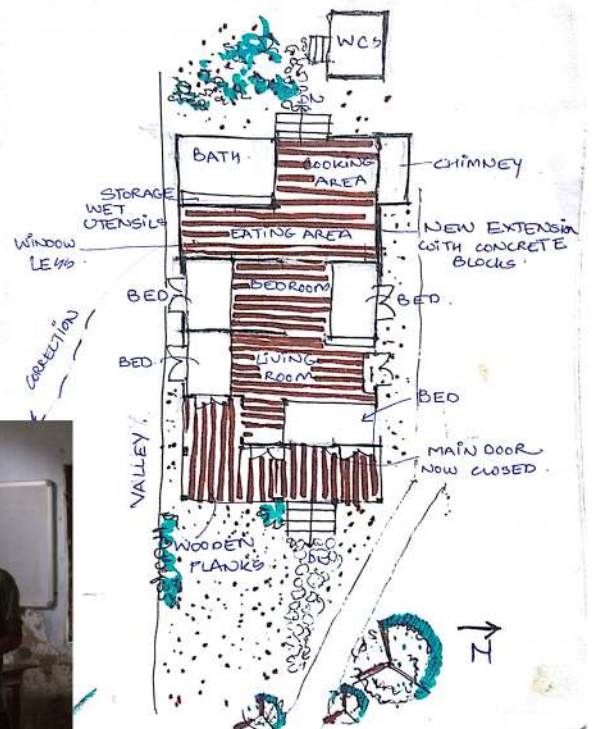 WCS
DN
BATH
COOKING
AREA
CHIMNEY
STORAGE
WET
UTENSILS
EATING AREA
NEW EXTENSION
WITH CONCRETE
BLOCKS.
WINDOW
LESS
BEDROOM
BED
BED.
CORRECTION
BED
LIVING
ROOM
BED
VALLEY
MAIN DOOR
NOW CLOSED.
WOODEN
PLANKS
N